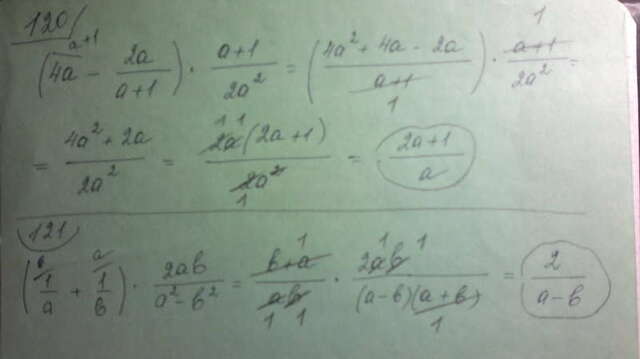 120/
(4a^{a+1} - \frac{2a}{a+1}) · \frac{a+1}{2a^2} = (\frac{4a^2+4a-2a}{a+1}) · \frac{a+1}{2a^2} =
= \frac{4a^2+2a}{2a^2} = \frac{2a(2a+1)}{2a^2} = \frac{2a+1}{a}
121
(\frac{1}{a}^{b} + \frac{1}{b}^{a}) · \frac{2ab}{a^2-b^2} = \frac{b+a}{ab} · \frac{2ab}{(a-b)(a+b)} = \frac{2}{a-b}